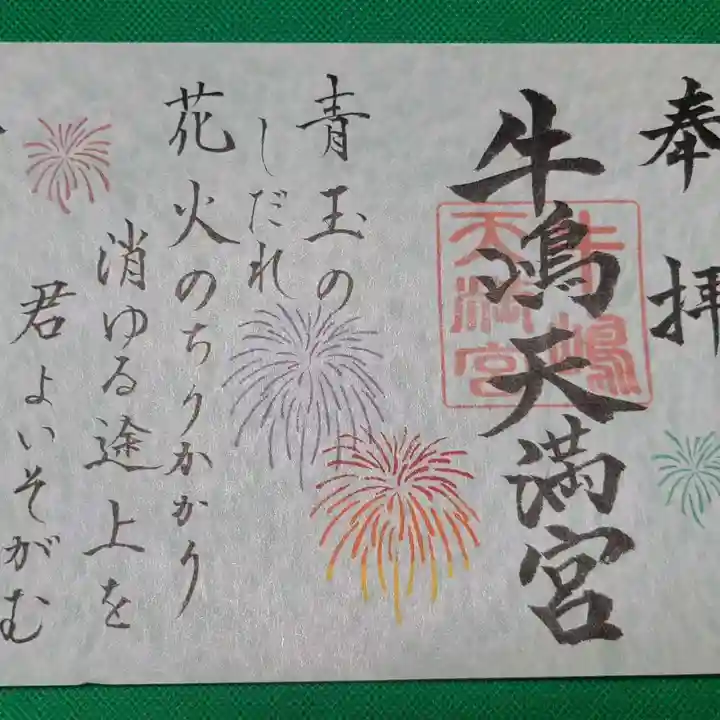 奉拝
牛嶋天満宮
牛嶋
天満宮
青玉の
しだれ
花火のちりかかり
消ゆる途上を
君よいそがむ